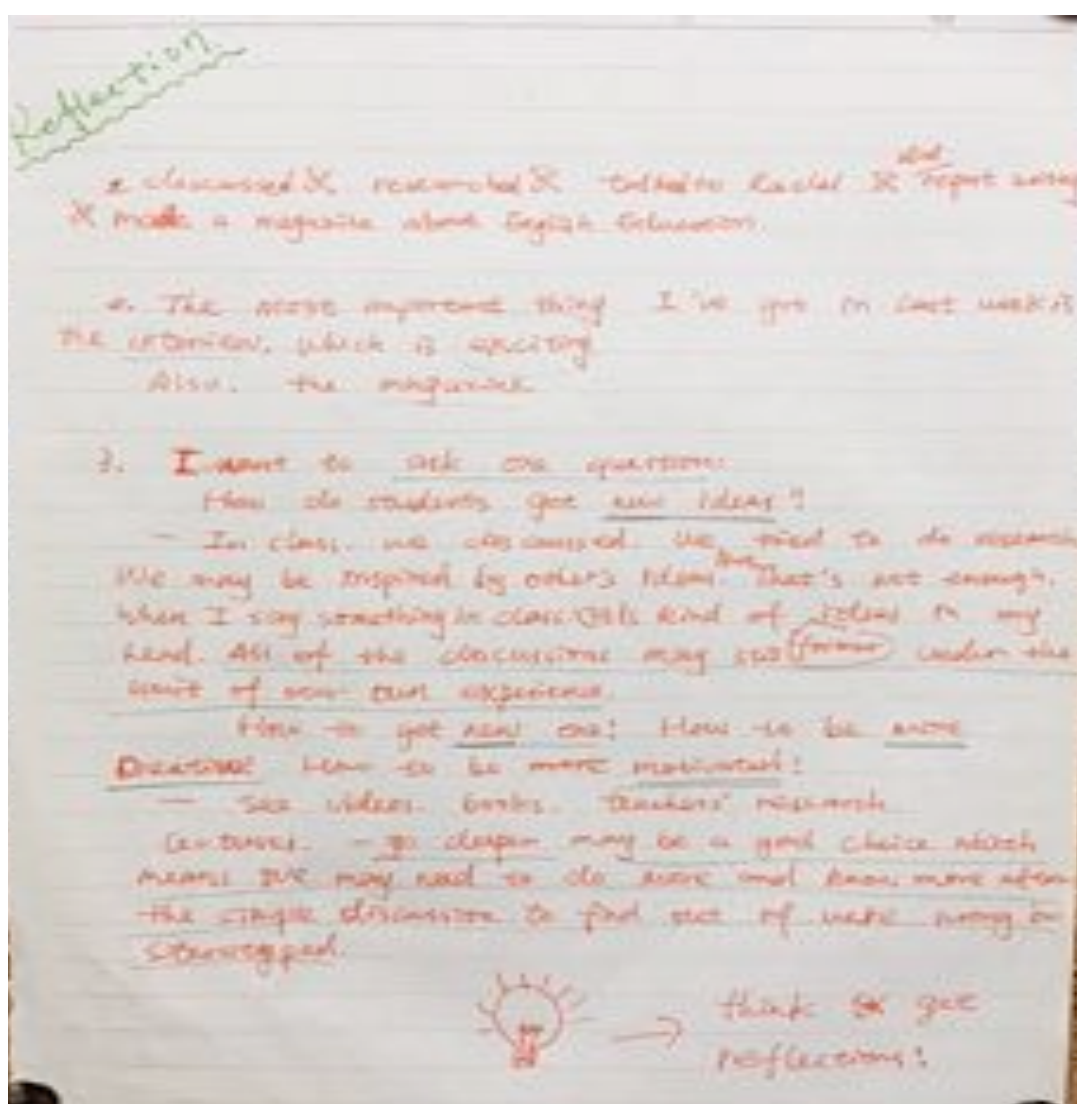 Reflection
discussed & researched & talked to Rachel & did report writing
& made a magazine about English Education.
2. The most important thing I've got in last week is
the interview, which is exciting
Also, the magazine
3. I want to ask one question:
How do students get new ideas?
- In class, we discussed. We tried to do research
We may be inspired by other's ideas. But That's not enough.
When I say something in class, it's kind of ideas in my
head. All of the discussions may under the
limit of own experience.
How to get new one? How to be more
creative? How to be more motivated?
- See videos. books. teachers' research
Lectures. - go deeper may be a good choice which
means we may need to do more and know more after
the single discussion to find out if we're wrong or
stereotyped.
think & get
reflections!